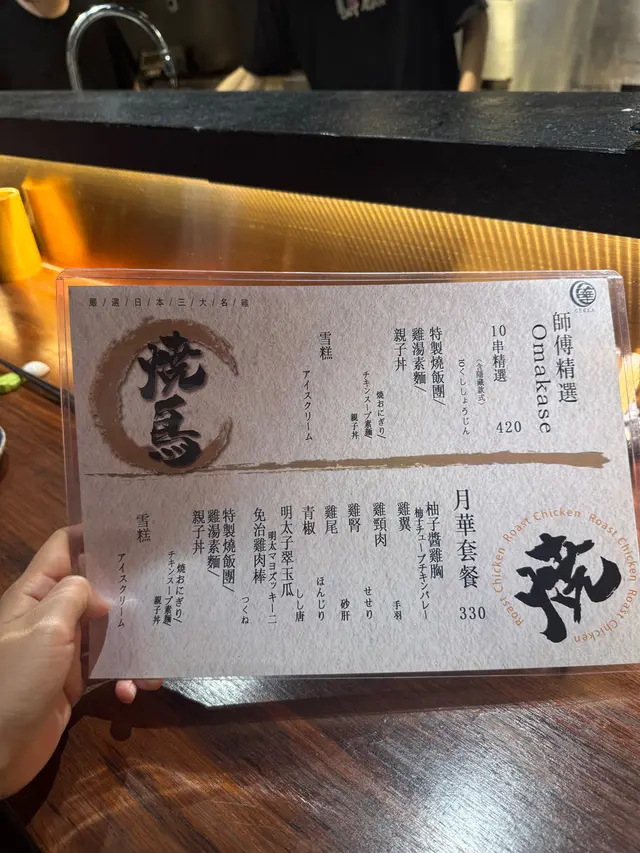 嚴/選/日/本/三/大/名/雞
燒鳥
師傅精選
Omakase
10串精選
(含隱藏款式)
10くししょうじん
420
特製燒飯團/
雞湯素麵/
親子丼
焼おにぎり/
チキンスープ素麺
親子丼
雪糕
アイスクリーム
月華套餐
330
柚子醬雞胸
柚子チューブチキンバレー
雞翼
手羽
雞頸肉
せせり
雞腎
砂肝
雞尾
ほんじり
青椒
しし唐
明太子翠玉瓜
明太マヨズッキーニ
免治雞肉棒
つくね
特製燒飯團/
雞湯素麵/
親子丼
焼おにぎり/
チキンスープ素麺
親子丼
雪糕
アイスクリーム
燒
Roast Chicken Roast Chicken Roast Chicken Roast Chicken